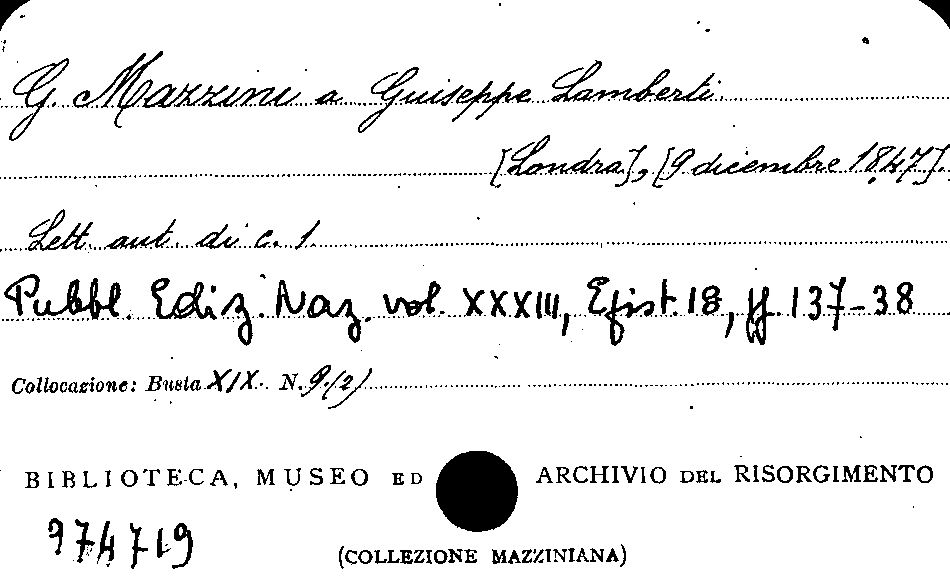 G. Mazzini a Guiseppe Lamberti.
[Londra], [9 dicembre 1847].
Lett. aut. di c. 1.
Pubbl. Ediz. Naz. vol. XXXIII, Epist. 18, pp. 137-38
Collocazione: Busta XIX. N. 9.(2)
BIBLIOTECA, MUSEO ED ARCHIVIO DEL RISORGIMENTO
974719
(COLLEZIONE MAZZINIANA)